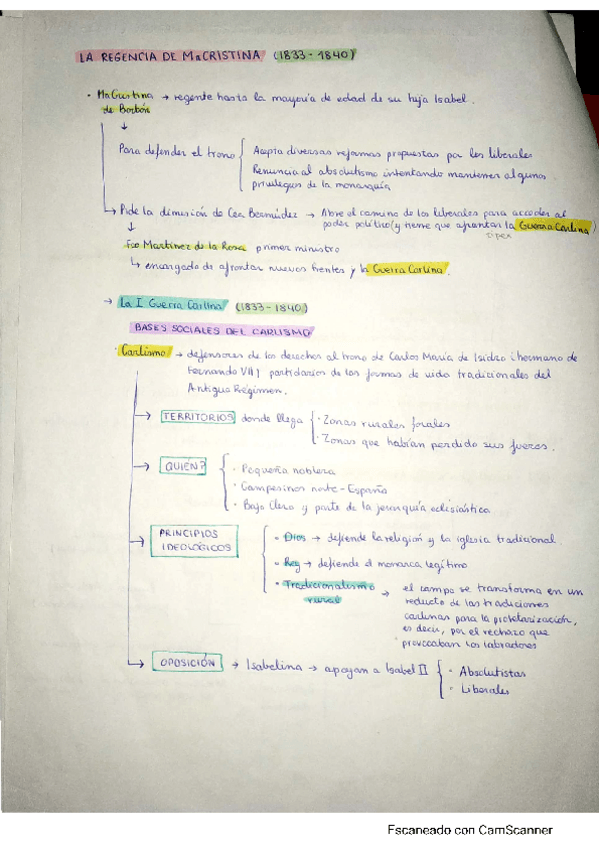 LA REGENCIA DE Mª CRISTINA (1833-1840)
· Mª Cristina → regente hasta la mayoría de edad de su hija Isabel.
de Borbón
↓
Para defender el trono { Acepta diversas reformas propuestas por los liberales
Renuncia al absolutismo intentando mantener algunos
privilegios de la monarquía
↳ Pide la dimisión de Cea Bermúdez → Abre el camino de los liberales para acceder al
poder político (y tiene que afrontar la Guerra Carlina)
↓
Fco Martínez de la Rosa primer ministro
↳ encargado de afrontar nuevos frentes y la Guerra Carlina.
→ La I Guerra Carlina (1833-1840)
BASES SOCIALES DEL CARLISMO
· Carlismo → defensores de los derechos al trono de Carlos María de Isidro (hermano de
Fernando VII) partidarios de las formas de vida tradicionales del
Antiguo Régimen.
→ TERRITORIOS donde llega { · Zonas rurales forales
· Zonas que habían perdido sus fueros.
→ QUIEN? { · Pequeña nobleza
· Campesinos norte-España
· Bajo Clero y parte de la jerarquía eclesiástica
→ PRINCIPIOS
IDEOLÓGICOS
{ · Dios → defiende la religión y la iglesia tradicional.
· Rey → defiende el monarca legítimo
· Tradicionalismo
rural → el campo se transforma en un
reducto de las tradiciones
carlinas para la proletarización,
es decir, por el rechazo que
provocaban los labradores
→ OPOSICIÓN → Isabelina → apoyan a Isabel II { · Absolutistas
· Liberales
Escaneado con CamScanner